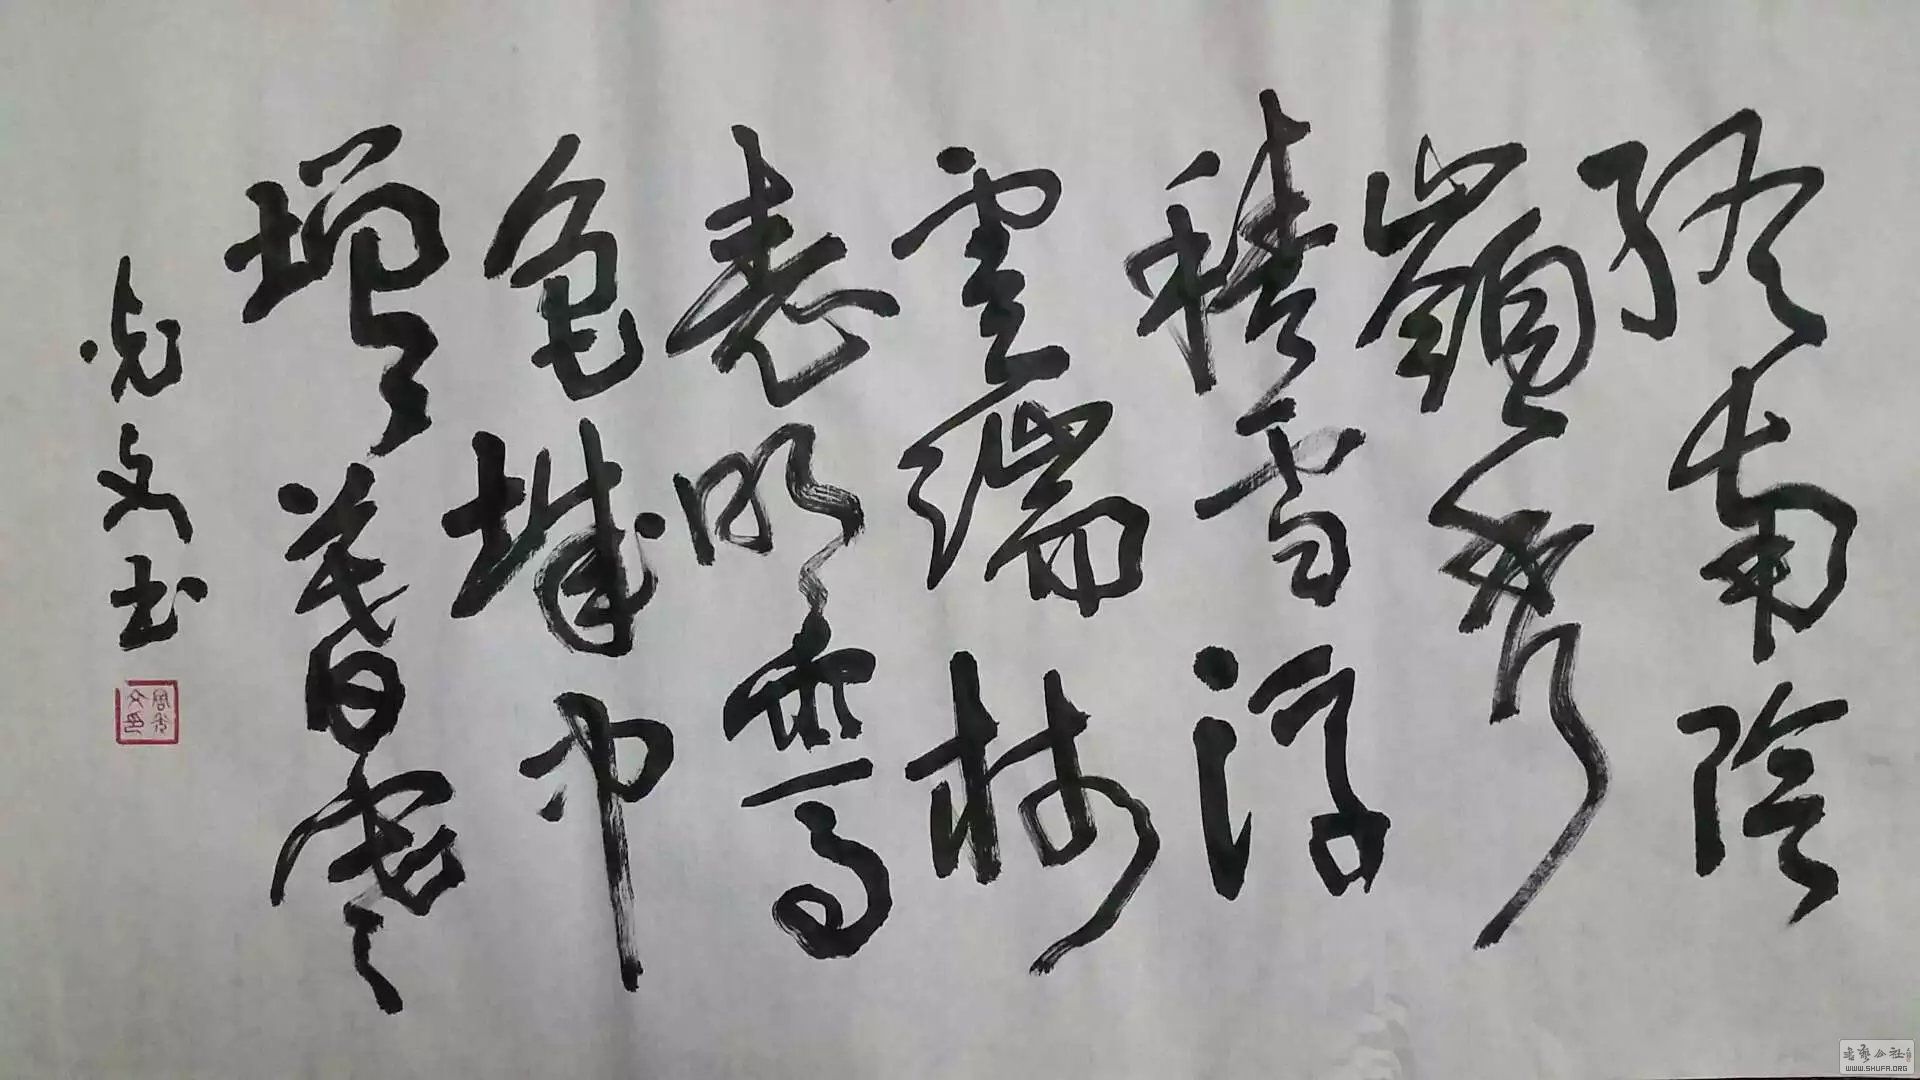 終南陰
嶺秀
積雪浮
雲端林
表明霽
色城中
增暮寒
光文书
书艺公社
WWW.SHUFA.ORG